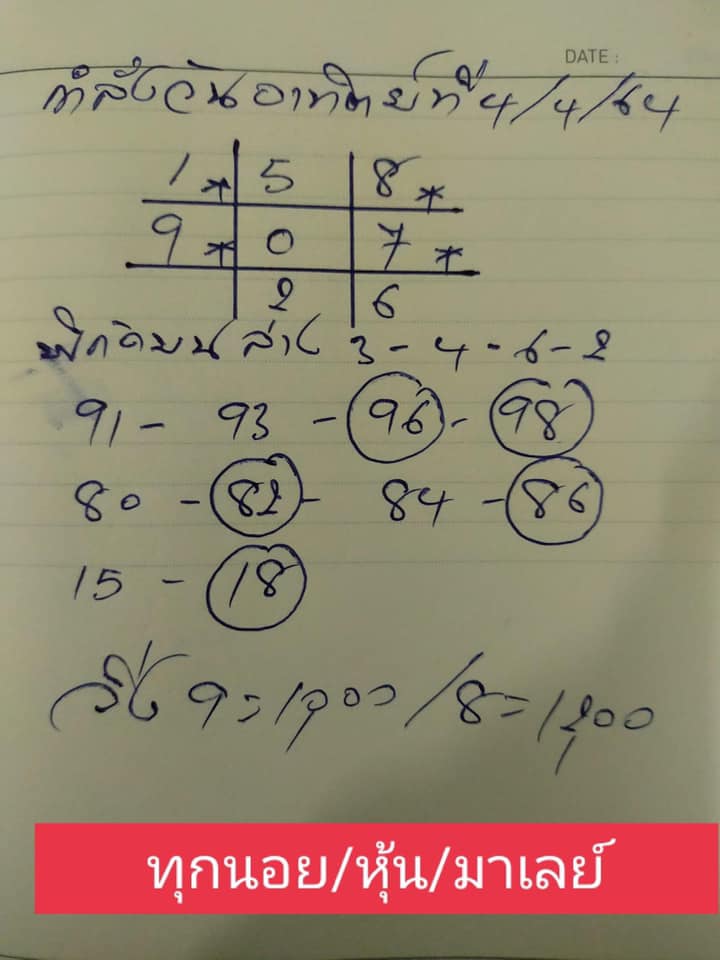 DATE :
กำลังวันอาทิตย์ที่ 4/4/64
1* 5 8*
9* 0 7*
2 6
พิกัดบน ล่าง 3-4-6-2
91 - 93 - 96 - 98
80 - 82 - 84 - 86
15 - 18
วิ่ง 9=1,000/8=1,200
ทุกนอย/หุ้น/มาเลย์